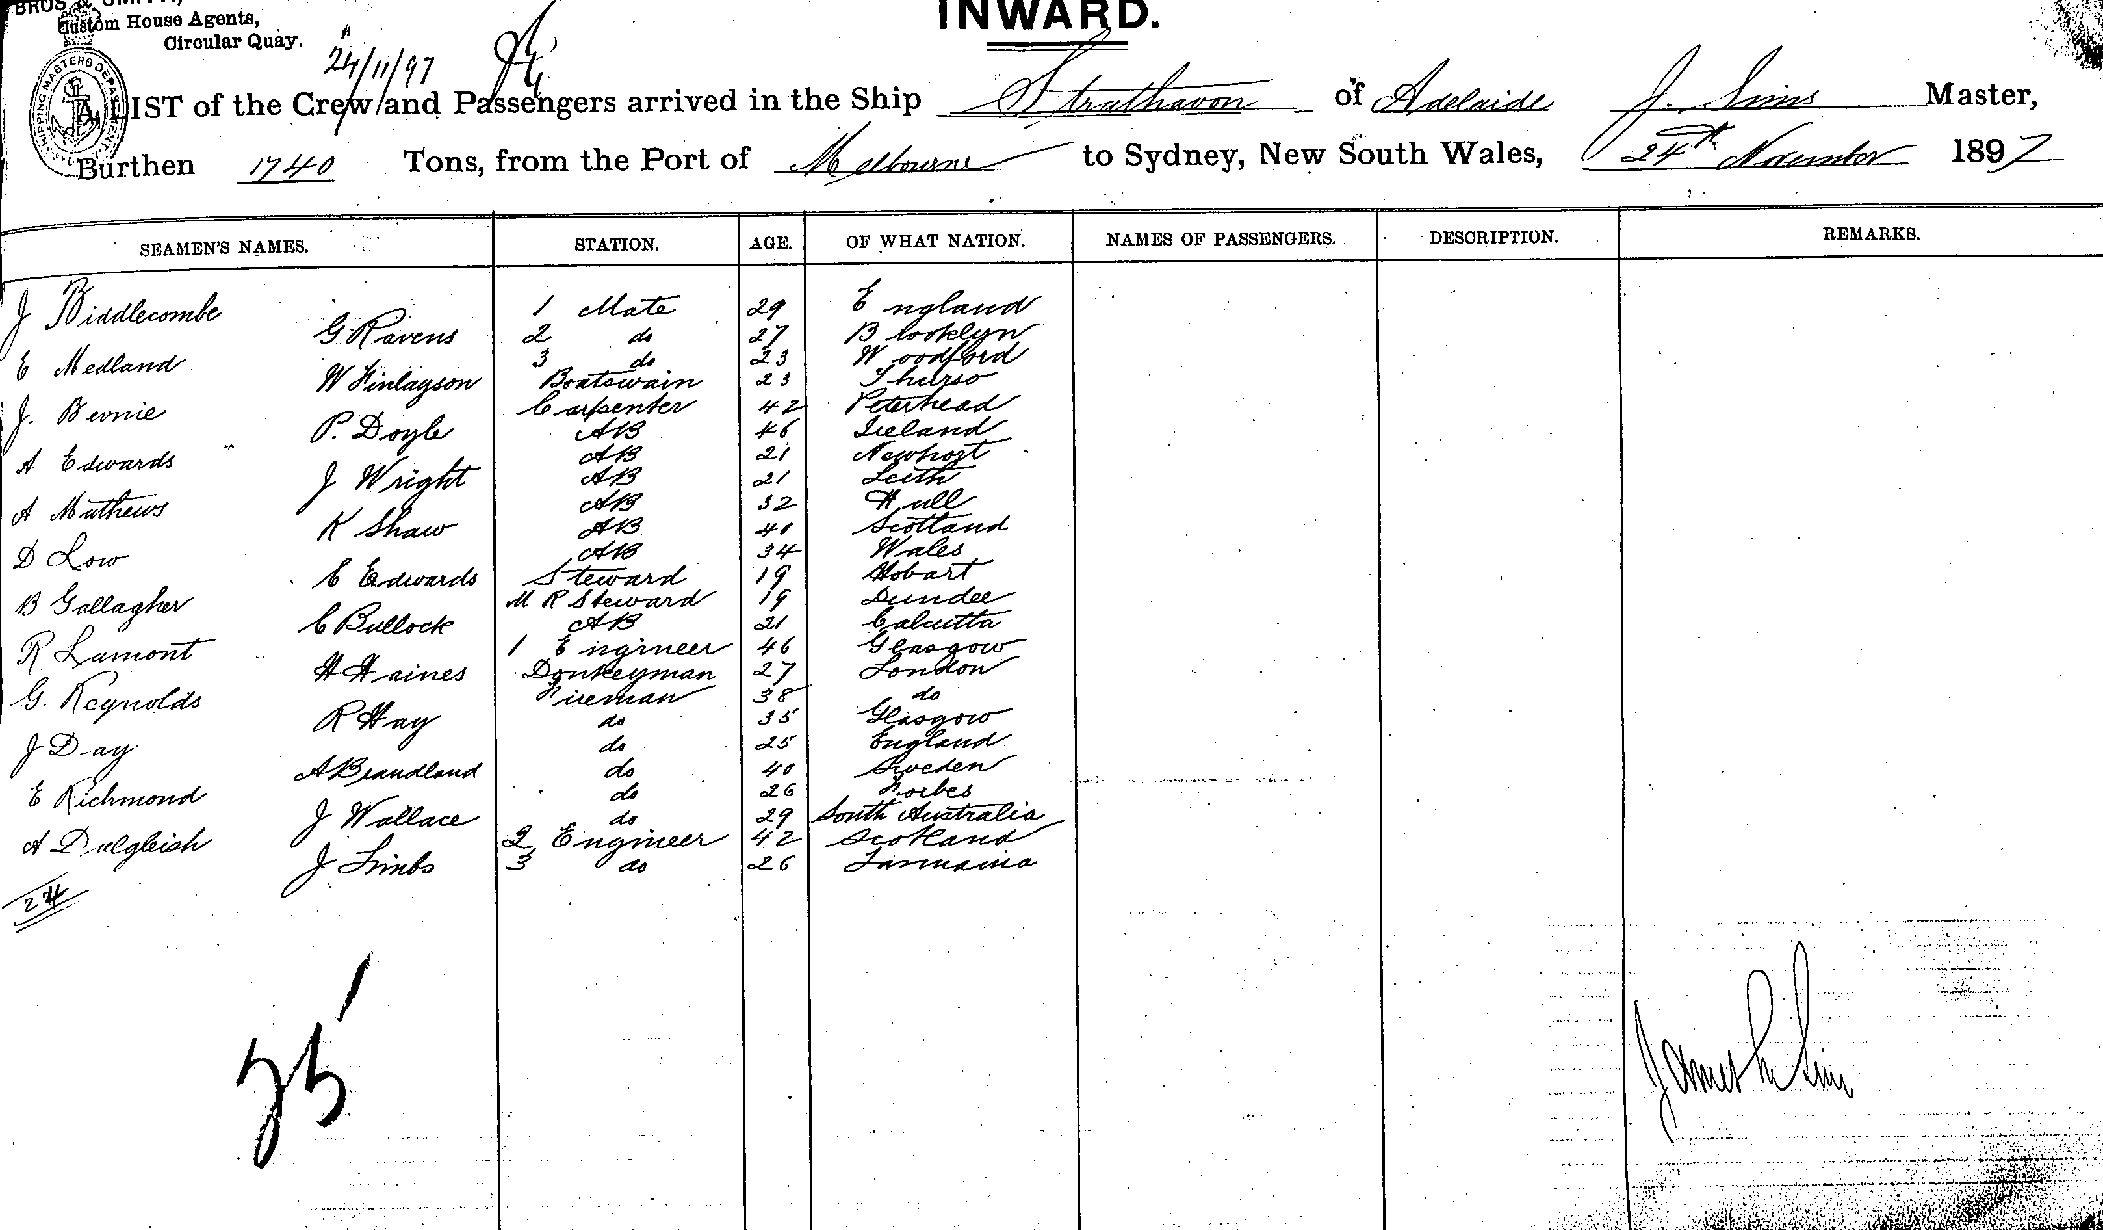 BROS & SMITH,
Custom House Agents,
Circular Quay.
INWARD.
24/11/97
A LIST of the Crew and Passengers arrived in the Ship Strathavon of Adelaide J. Sims Master,
Burthen 1740 Tons, from the Port of Melbourne to Sydney, New South Wales, 24th November 1897
SEAMEN'S NAMES. STATION. AGE. OF WHAT NATION. NAMES OF PASSENGERS. DESCRIPTION. REMARKS.
J Biddlecombe 1 Mate 29 England
G Ravens 2 do 27 Brooklyn
E Medland 3 do 23 Woodford
W Finlayson Boatswain 23 Thurso
J. Bernie Carpenter 42 Peterhead
P. Doyle AB 46 Ireland
A Edwards AB 21 Newport
J Wright AB 21 Leith
A Mathews AB 32 Hull
K Shaw AB 40 Scotland
D Low AB 34 Wales
C Edwards Steward 19 Hobart
B Gallagher M R Steward 19 Dundee
C Bullock AB 21 Calcutta
R Lamont 1 Engineer 46 Glasgow
H Haines Donkeyman 27 London
G. Reynolds Fireman 38 do
R Hay do 35 Glasgow
J Day do 25 England
A Beaudland do 40 Sweden
E Richmond do 26 Forbes
J Wallace do 29 South Australia
A Dalgleish 2 Engineer 42 Scotland
J Limbs 3 do 26 Tasmania
24
25
James Sim